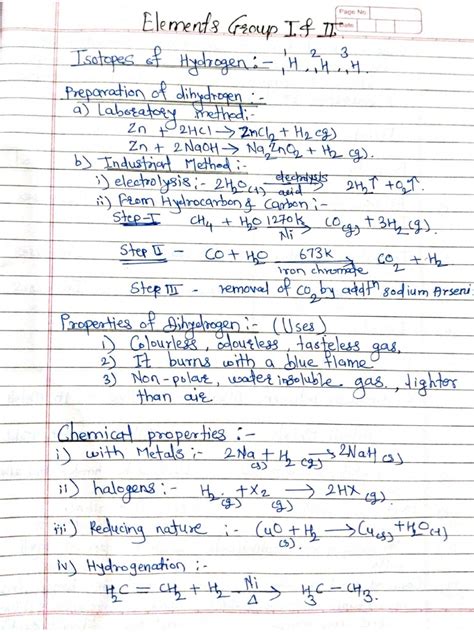 Page No.
Date
Elements Group I & II
Isotopes of Hydrogen :- ¹₁H, ²₁H, ³₁H.
Preparation of dihydrogen :-
a) Laboratory method:-
Zn + 2HCl → ZnCl₂ + H₂ (g)
Zn + 2NaOH → Na₂ZnO₂ + H₂ (g).
b) Industrial Method :-
i) electrolysis :- 2H₂O(l) electrolysis → acid 2H₂↑ + O₂↑.
ii) From Hydrocarbon & Carbon :-
Step-I CH₄ + H₂O 1270K → Ni CO(g) + 3H₂ (g).
Step II - CO + H₂O 673K → iron chromate CO₂ + H₂
Step III - removal of CO₂ by addtⁿ sodium Arseni
Properties of Dihydrogen :- (Uses)
1) Colourless, odourless, tasteless gas,
2) It burns with a blue flame
3) Non-polar, water insoluble gas, lighter
than air
Chemical properties :-
i) with Metals :- 2Na(s) + H₂(g) → 2NaH(s)
ii) halogens :- H₂(g) + X₂(g) → 2HX (g).
iii) Reducing nature :- CuO(s) + H₂ → Cu(s) + H₂O(l)
iv) Hydrogenation :-
H₂C = CH₂ + H₂ Ni → Δ H₃C - CH₃.